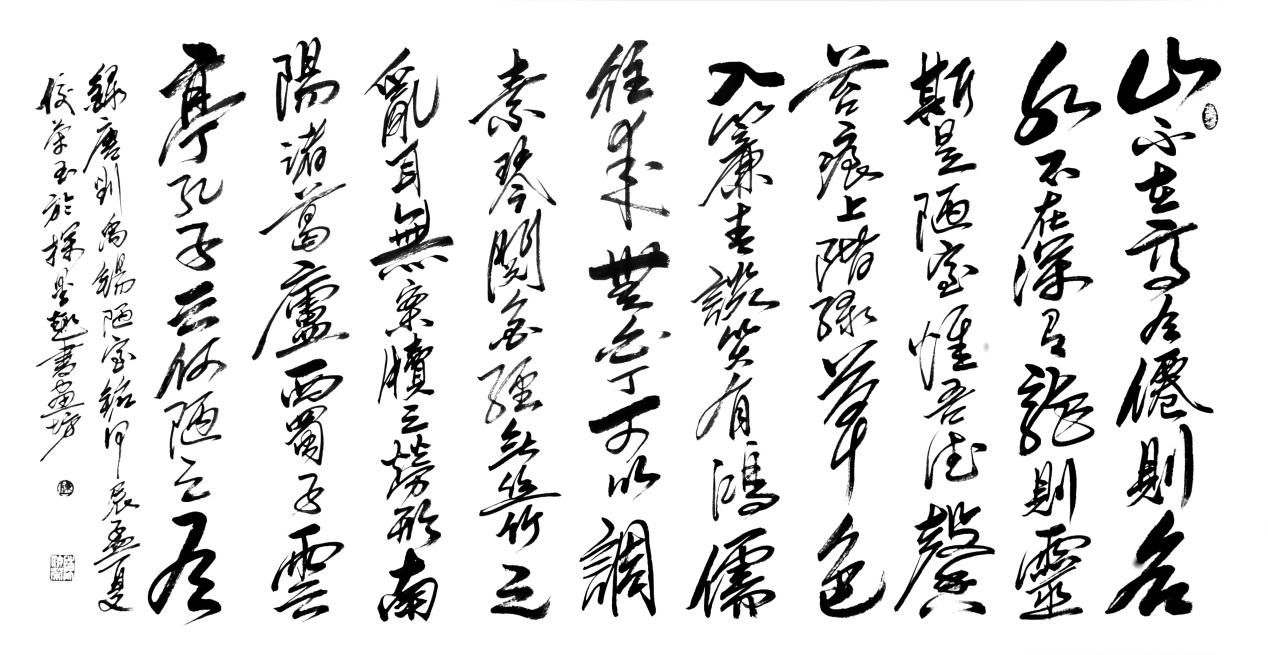 山不在高有僊則名
水不在深有龍則靈
斯是陋室惟吾德馨
苔痕上階綠草色
入簾青談笑有鴻儒
往來無白丁可以調
素琴閱金經無絲竹之
亂耳無案牘之勞形南
陽諸葛廬西蜀子雲
亭孔子云何陋之有
錄唐刘禹錫陋室銘甲辰孟夏
俊荣於探墨趣書畫坊